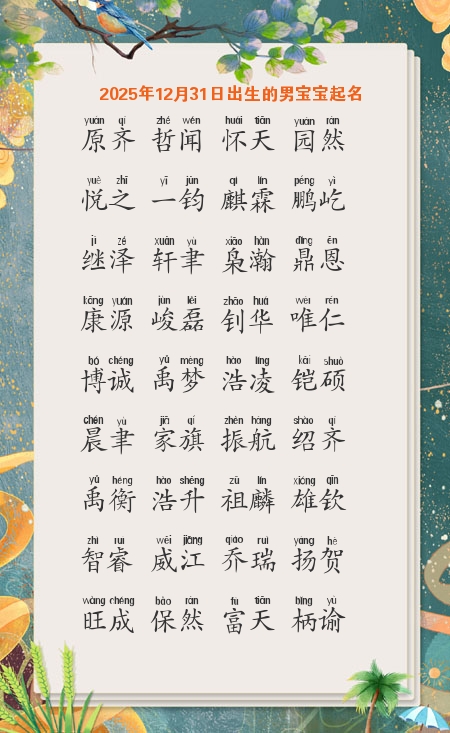 2025年12月31日出生的男宝宝起名
yuán qí zhé wén huái tiān yuán rán
原齐 哲闻 怀天 园然
yuè zhī yī jūn qí lín péng yì
悦之 一钧 麒霖 鹏屹
jì zé xuān yù xiāo hàn dǐng ēn
继泽 轩聿 枭瀚 鼎恩
kāng yuán jùn lěi zhāo huá wéi rén
康源 峻磊 钊华 唯仁
bó chéng yǔ mèng hào líng kǎi shuò
博诚 禹梦 浩凌 铠硕
chén yù jiā qí zhèn háng shào qí
晨聿 家旗 振航 绍齐
yǔ héng hào shēng zǔ lín xióng qīn
禹衡 浩升 祖麟 雄钦
zhì ruì wēi jiāng qiáo ruì yáng hè
智睿 威江 乔瑞 扬贺
wàng chéng bǎo rán fù tiān bǐng yú
旺成 保然 富天 柄谕